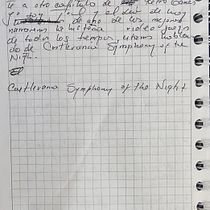 a otro capitulo de retro Games
y el dia de hoy
de uno de los mejores
la historia video juegos
de todos los tiempos, estamos hablan
do de Castlevania Symphony of the
Nigth.
Castlevania Symphony of the Night